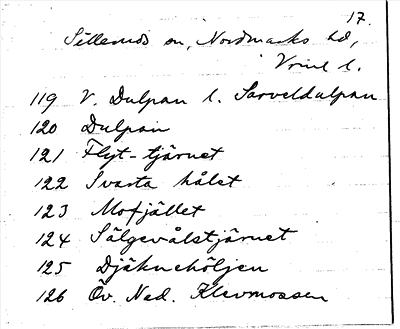 17.
Silleruds sn, Nordmarks hd,
Vrml l.
119 V. Dulpan l. Sarveldulpan
120 Dulpan
121 Flyt-tjärnet
122 Svarta hålet
123 Mofjället
124 Sälgevålstjärnet
125 Djäknehöljen
126 Öv. Ned. Klevmossen